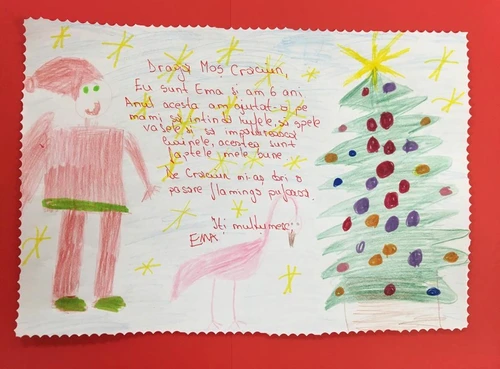 Dragă Moș Crăciun,
Eu sunt Ema și am 6 ani
Anul acesta am ajutat-o pe
mami să întindă rufele, să spele
vasele și să împăturească
hainele, acestea sunt
faptele mele bune.
De Crăciun mi-aș dori o
pasăre flamingo pufoasă.
Îți mulțumesc
EMA